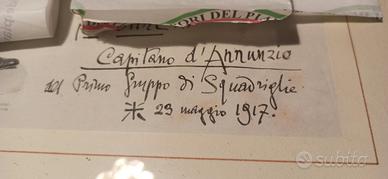 ORI DEL PI
Capitano d'Annunzio
del Primo Gruppo di Squadriglie
29 maggio 1917.
subito